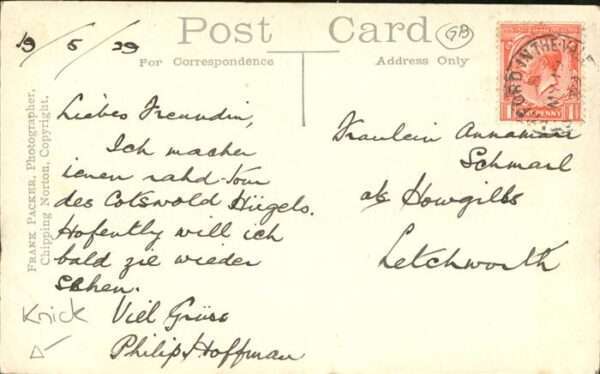 19/5/29
Post Card
GB
For Correspondence
Address Only
FRANK PACKER, Photographer,
Chipping Norton, Copyright.
Liebes Freundin,
Ich macher
ienen rahd-Tour
des Cotswold Hügels.
Hofently will ich
bald zie wieder
sehen.
Viel Grüse
Philip Hoffman
Knick
Fraulein Annamarie
Schmarl
a/s Howgills
Letchworth
FORD-IN-THE-VALE
PENNY
1